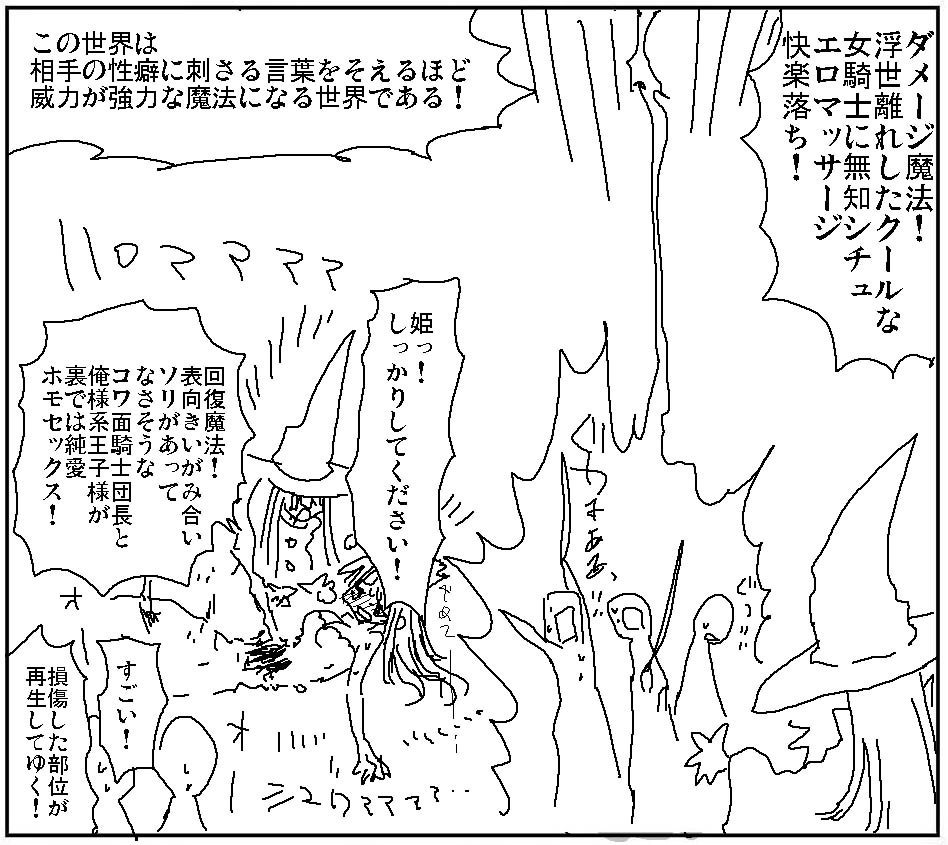 ダメージ魔法！
浮世離れしたクールな
女騎士に無知シチュ
エロマッサージ
快楽落ち！
この世界は
相手の性癖に刺さる言葉をそえるほど
威力が強力な魔法になる世界である！
姫っ！
しっかりしてください！
回復魔法！
表向きいがみ合い
ソリがあって
なさそうな
コワ面騎士団長と
俺様系王子様が
裏では純愛
ホモセックス！
すごい！
損傷した部位が
再生してゆく！